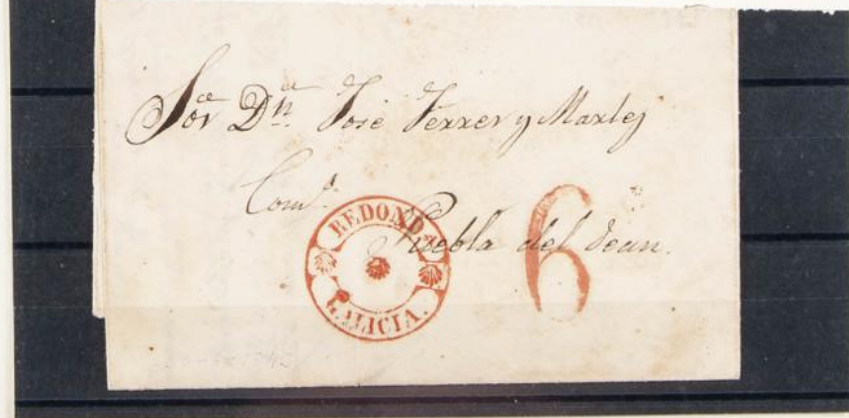 Sor Dn José Ferrer y Martz
Comd.
Puebla del Dean.
REDONDELA
GALICIA.
6